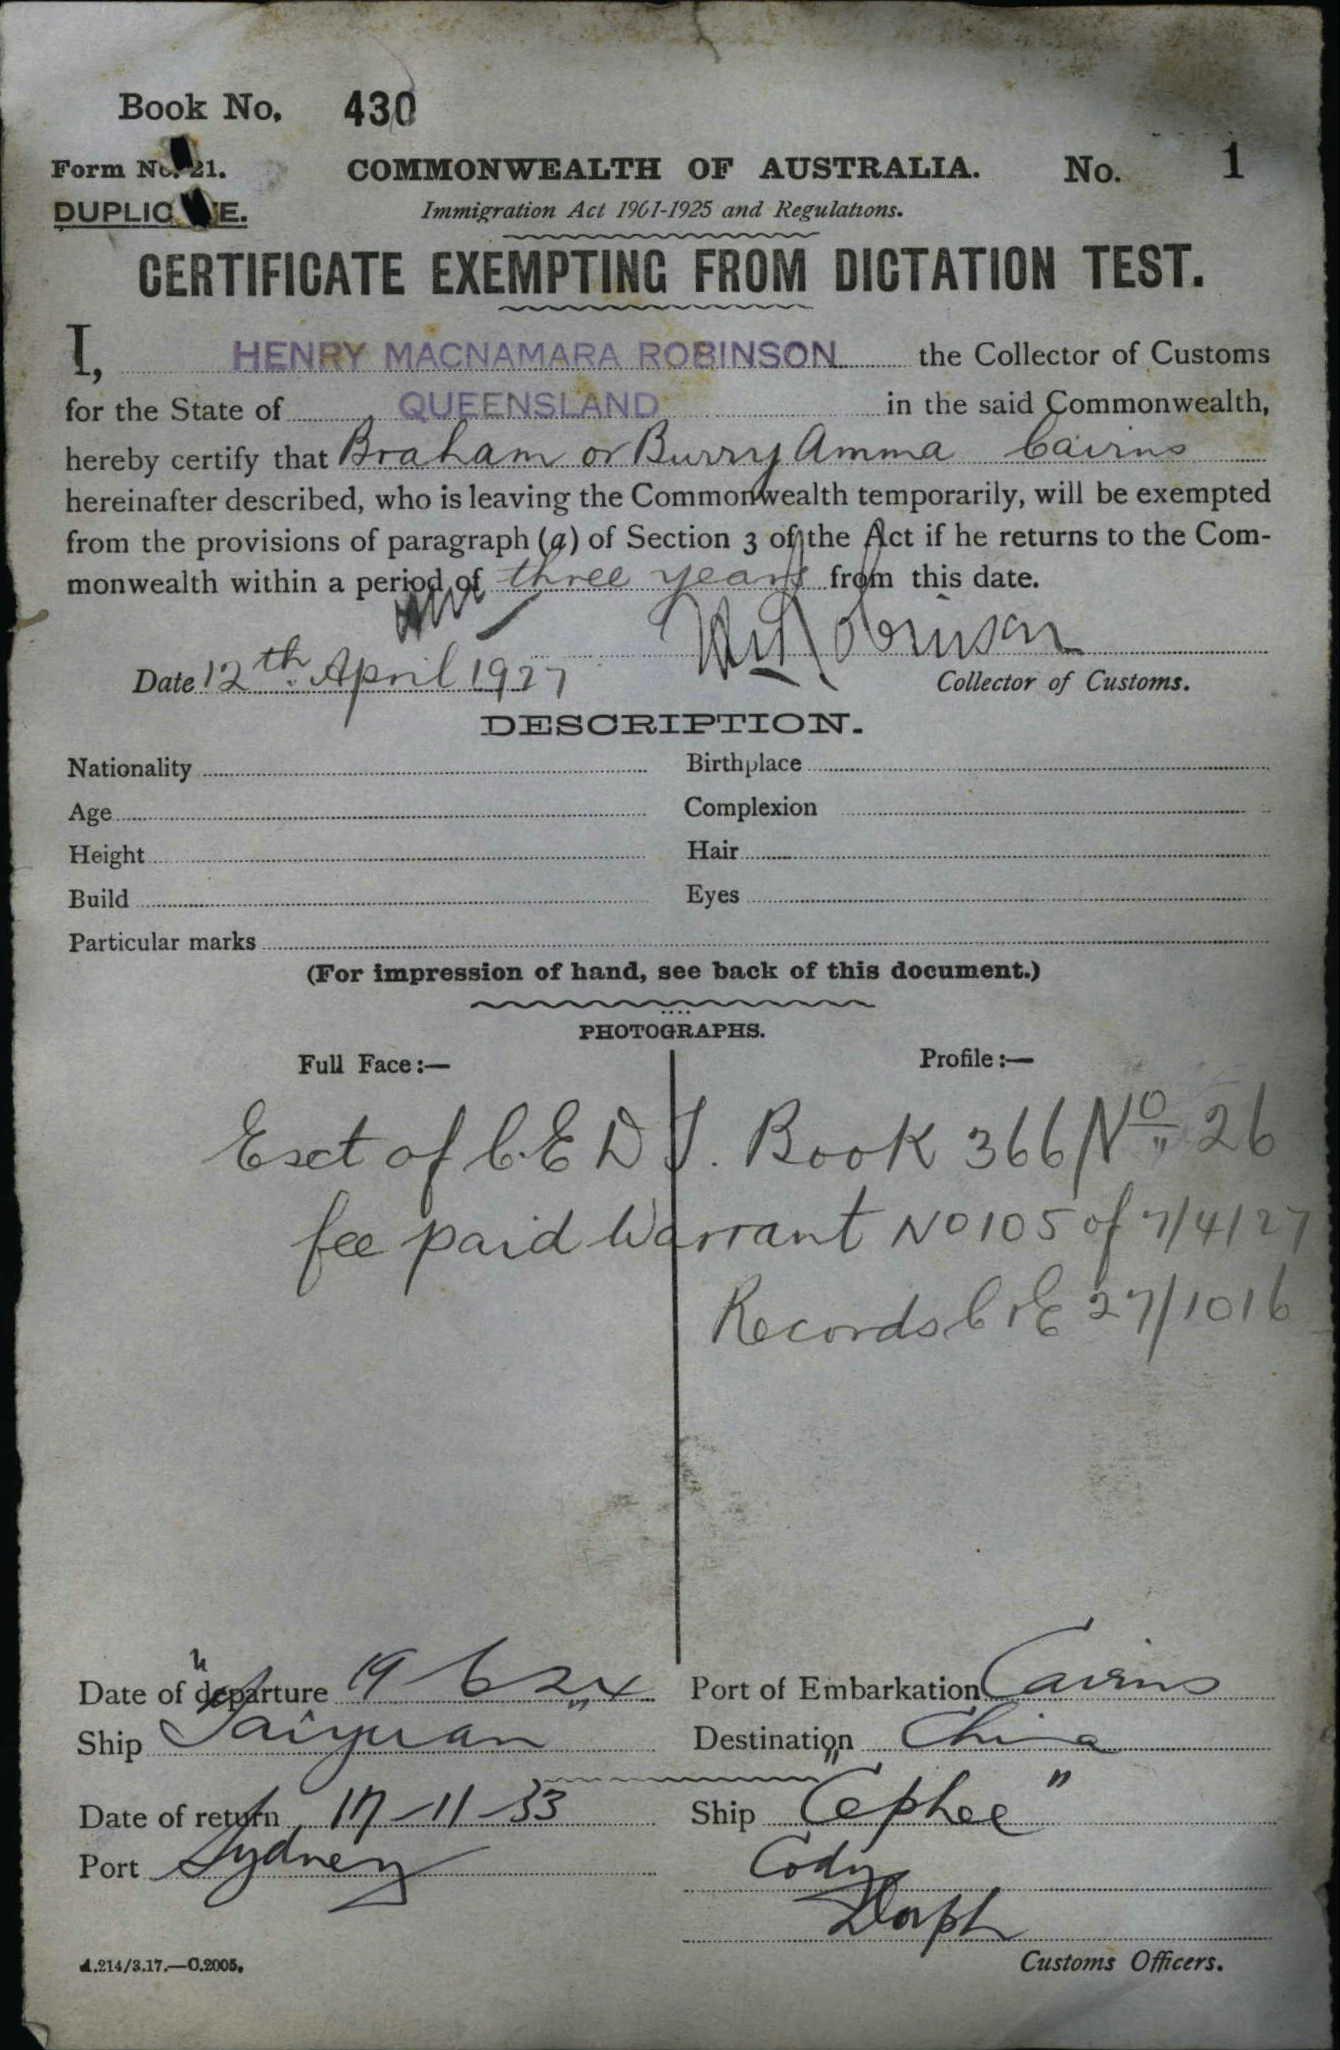 Book No. 430
Form No. 21. COMMONWEALTH OF AUSTRALIA. No. 1
Immigration Act 1901-1925 and Regulations.
CERTIFICATE EXEMPTING FROM DICTATION TEST.
I, HENRY MACNAMARA ROBINSON the Collector of Customs
for the State of QUEENSLAND in the said Commonwealth,
hereby certify that Braham or Burry Amma Cairns
hereinafter described, who is leaving the Commonwealth temporarily, will be exempted
from the provisions of paragraph (a) of Section 3 of the Act if he returns to the Com-
monwealth within a period of three years from this date.
Date 12th April 1927
Collector of Customs.
DESCRIPTION.
Nationality Birthplace
Age Complexion
Height Hair
Build Eyes
Particular marks
(For impression of hand, see back of this document.)
PHOTOGRAPHS.
Full Face:— Profile:—
Exct of C.E D T. Book 366 No 26
fee paid Warrant No 105 of 7/4/27
Records 27/1016
Date of departure 19 6 24 Port of Embarkation Cairns
Ship "Taiyuan" Destination China
Date of return 17-11-33 Ship "Cephee"
Port Sydney Cody
Customs Officers.